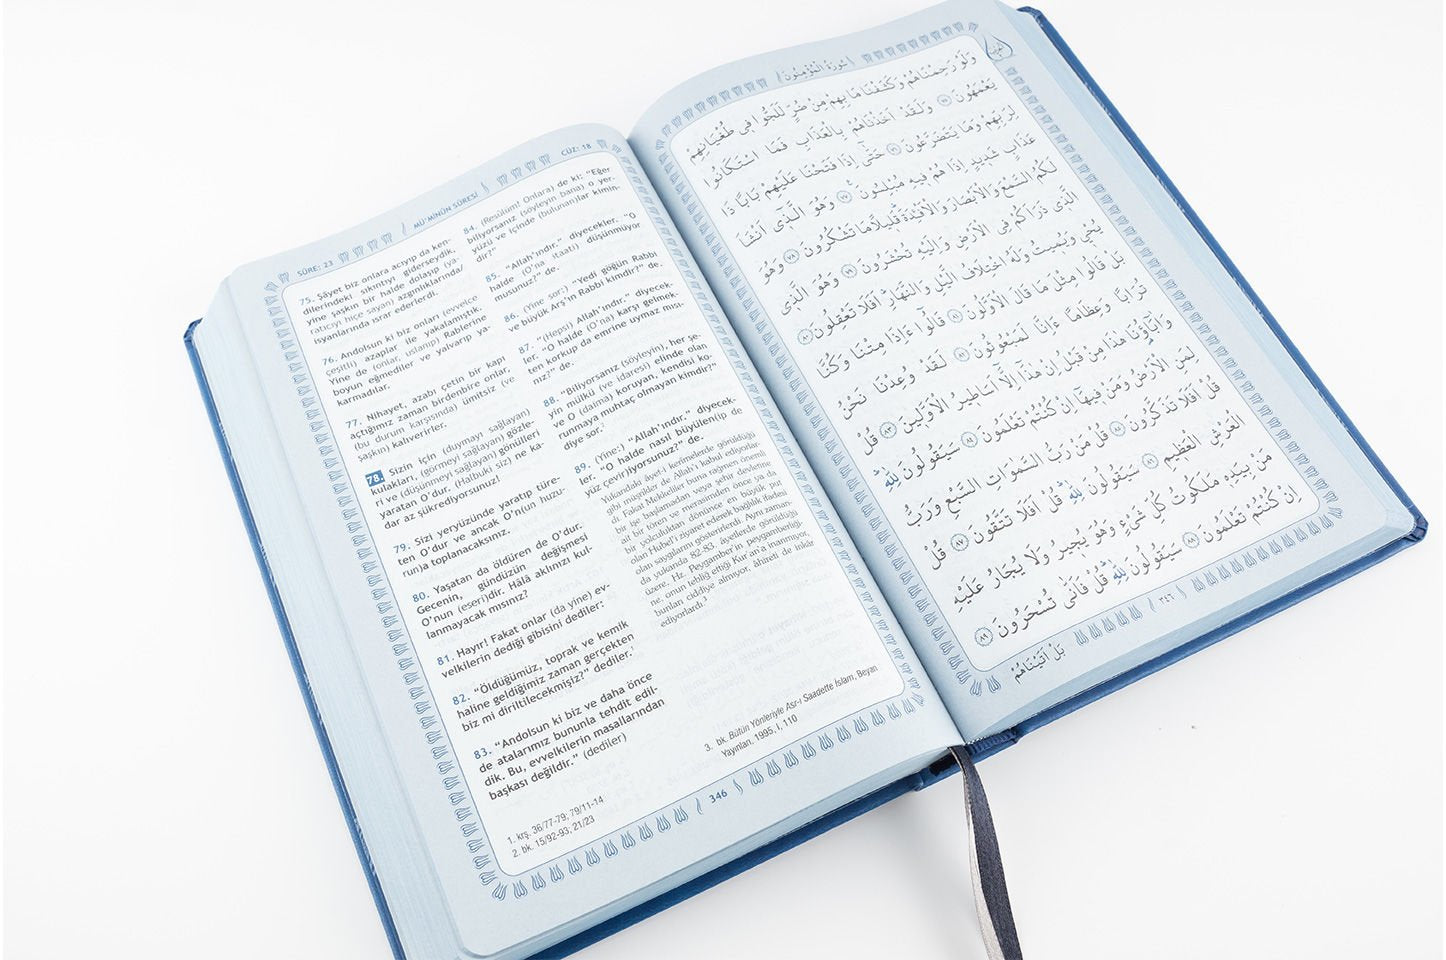 SÛRE: 23
MÜ'MİNÛN SÛRESİ
CÜZ: 18
75. Şâyet biz onlara acıyıp da ken-
dilerindeki sıkıntıyı giderseydik,
yine şaşkın bir halde dolaşıp (ya-
ratıcıyı hiçe sayan) azgınlıklarında/
isyanlarında ısrar ederlerdi.
76. Andolsun ki biz onları (evvelce
çeşitli) azaplar ile yakalamıştık.
Yine de (onlar, uslanıp) Rablerine
boyun eğmediler ve yalvarıp ya-
karmadılar.
77. Nihayet, azabı çetin bir kapı
açtığımız zaman birdenbire onlar,
(bu durum karşısında) ümitsiz (ve
şaşkın) kalıverirler.
78. Sizin için (duymayı sağlayan)
kulakları, (görmeyi sağlayan) gözle-
ri ve (düşünmeyi sağlayan) gönülleri
yaratan O'dur. (Halbuki siz) ne ka-
dar az şükrediyorsunuz!
79. Sizi yeryüzünde yaratıp türe-
ten O'dur ve ancak O'n(un huzu-
run)a toplanacaksınız.
80. Yaşatan da öldüren de O'dur.
Gecenin, gündüzün değişmesi
O'nun (eseri)dir. Hâlâ aklınızı kul-
lanmayacak mısınız?
81. Hayır! Fakat onlar (da yine) ev-
velkilerin dediği gibisini dediler:
82. "Öldüğümüz, toprak ve kemik
haline geldiğimiz zaman gerçekten
biz mi diriltilecekmişiz?" dediler.¹
83. "Andolsun ki biz ve daha önce
de atalarımız bununla tehdit edil-
dik. Bu, evvelkilerin masallarından
başkası değildir." (dediler)
84. (Resûlüm! Onlara) de ki: "Eğer
biliyorsanız (söyleyin bana) o yer-
yüzü ve içinde (bulunan)lar kimin-
dir?"
85. "Allah'ındır." diyecekler. "O
halde (O'na itaati) düşünmüyor
musunuz?" de.
86. (Yine sor:) "Yedi göğün Rabbi
ve büyük Arş'ın Rabbi kimdir?" de.
87. "(Hepsi) Allah'ındır." diyecek-
ler. "O halde (O'na) karşı gelmek-
ten korkup da emrine uymaz mısı-
nız?" de.
88. "Biliyorsanız (söyleyin), her şe-
yin mülkü (ve idaresi) elinde olan
ve O (daima) koruyan, kendisi ko-
runmaya muhtaç olmayan kimdir?"
diye sor.²
89. (Yine:) "Allah'ındır." diyecek-
ler. "O halde nasıl büyülen(ip de
yüz çevir)iyorsunuz?" de.
Yukarıdaki âyet-i kerimelerde görüldüğü
gibi müşrikler de Allah'ı kabul ediyorlar-
dı. Fakat Mekkeliler buna rağmen önemli
bir işe başlamadan veya şehir devletine
ait bir tören ve merasimden önce ya da
bir yolculuktan dönünce en büyük put
olan Hubel'i ziyaret ederek bağlılık ifadesi
olan saygılarını gösterirlerdi. Aynı zaman-
da yukarıda 82-83. âyetlerde görüldüğü
üzere, Hz. Peygamber'in peygamberliği-
ne, onun tebliğ ettiği Kur'an'a inanmıyor,
bunları ciddiye almıyor, âhireti de inkâr
ediyorlardı.³
1. krş. 36/77-79; 79/11-14
2. bk. 15/92-93; 21/23
3. bk. Bütün Yönleriyle Asr-ı Saadette İslam, Beyan
Yayınları, 1995, I, 110
346
﴿سُورَةُ الْمُؤْمِنُونَ﴾
وَلَوْ رَحِمْنَاهُمْ وَكَشَفْنَا مَا بِهِمْ مِنْ ضُرٍّ لَلَجُّوا فِي طُغْيَانِهِمْ
يَعْمَهُونَ ﴿٧٥﴾ وَلَقَدْ اَخَذْنَاهُمْ بِالْعَذَابِ فَمَا اسْتَكَانُوا
لِرَبِّهِمْ وَمَا يَتَضَرَّعُونَ ﴿٧٦﴾ حَتّٰٓى اِذَا فَتَحْنَا عَلَيْهِمْ بَابًا ذَا
عَذَابٍ شَدِيدٍ اِذَا هُمْ فِيهِ مُبْلِسُونَ ﴿٧٧﴾ وَهُوَ الَّذِٓي اَنْشَاَ
لَكُمُ السَّمْعَ وَالْاَبْصَارَ وَالْاَفْئِدَةَ قَلِيلًا مَا تَشْكُرُونَ ﴿٧٨﴾ وَهُوَ
الَّذِي ذَرَاَكُمْ فِي الْاَرْضِ وَاِلَيْهِ تُحْشَرُونَ ﴿٧٩﴾ وَهُوَ الَّذِي
يُحْيِي وَيُمِيتُ وَلَهُ اخْتِلَافُ الَّيْلِ وَالنَّهَارِ اَفَلَا تَعْقِلُونَ ﴿٨٠﴾
بَلْ قَالُوا مِثْلَ مَا قَالَ الْاَوَّلُونَ ﴿٨١﴾ قَالُٓوا ءَاِذَا مِتْنَا وَكُنَّا
تُرَابًا وَعِظَامًا ءَاِنَّا لَمَبْعُوثُونَ ﴿٨٢﴾ لَقَدْ وُعِدْنَا نَحْنُ
وَاٰبَٓاؤُنَا هٰذَا مِنْ قَبْلُ اِنْ هٰذَٓا اِلَّٓا اَسَاطِيرُ الْاَوَّلِينَ ﴿٨٣﴾ قُلْ
لِمَنِ الْاَرْضُ وَمَنْ فِيهَٓا اِنْ كُنْتُمْ تَعْلَمُونَ ﴿٨٤﴾ سَيَقُولُونَ لِلّٰهِ
قُلْ اَفَلَا تَذَكَّرُونَ ﴿٨٥﴾ قُلْ مَنْ رَبُّ السَّمٰوَاتِ السَّبْعِ وَرَبُّ
الْعَرْشِ الْعَظِيمِ ﴿٨٦﴾ سَيَقُولُونَ لِلّٰهِ قُلْ اَفَلَا تَتَّقُونَ ﴿٨٧﴾ قُلْ
مَنْ بِيَدِهِ مَلَكُوتُ كُلِّ شَيْءٍ وَهُوَ يُجِيرُ وَلَا يُجَارُ عَلَيْهِ
اِنْ كُنْتُمْ تَعْلَمُونَ ﴿٨٨﴾ سَيَقُولُونَ لِلّٰهِ قُلْ فَاَنّٰى تُسْحَرُونَ ﴿٨٩﴾
٣٤٦
بَلْ اَتَيْنَاهُمْ